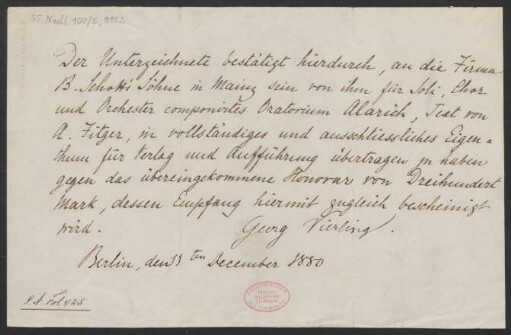 55 Nachl 100/B, 9152
Der Unterzeichnete bestätigt hierdurch, an die Firma
B. Schott's Söhne in Mainz sein von ihm für Soli, Chor
und Orchester componirtes Oratorium Alarich, Text von
A. Fitger, in vollständiges und ausschliessliches Eigen=
thum für Verlag und Aufführung übertragen zu haben
gegen das übereingekommene Honorar von Dreihundert
Mark, dessen Empfang hiermit zugleich bescheinigt
wird.
Georg Vierling.
Berlin, den ten December 1880